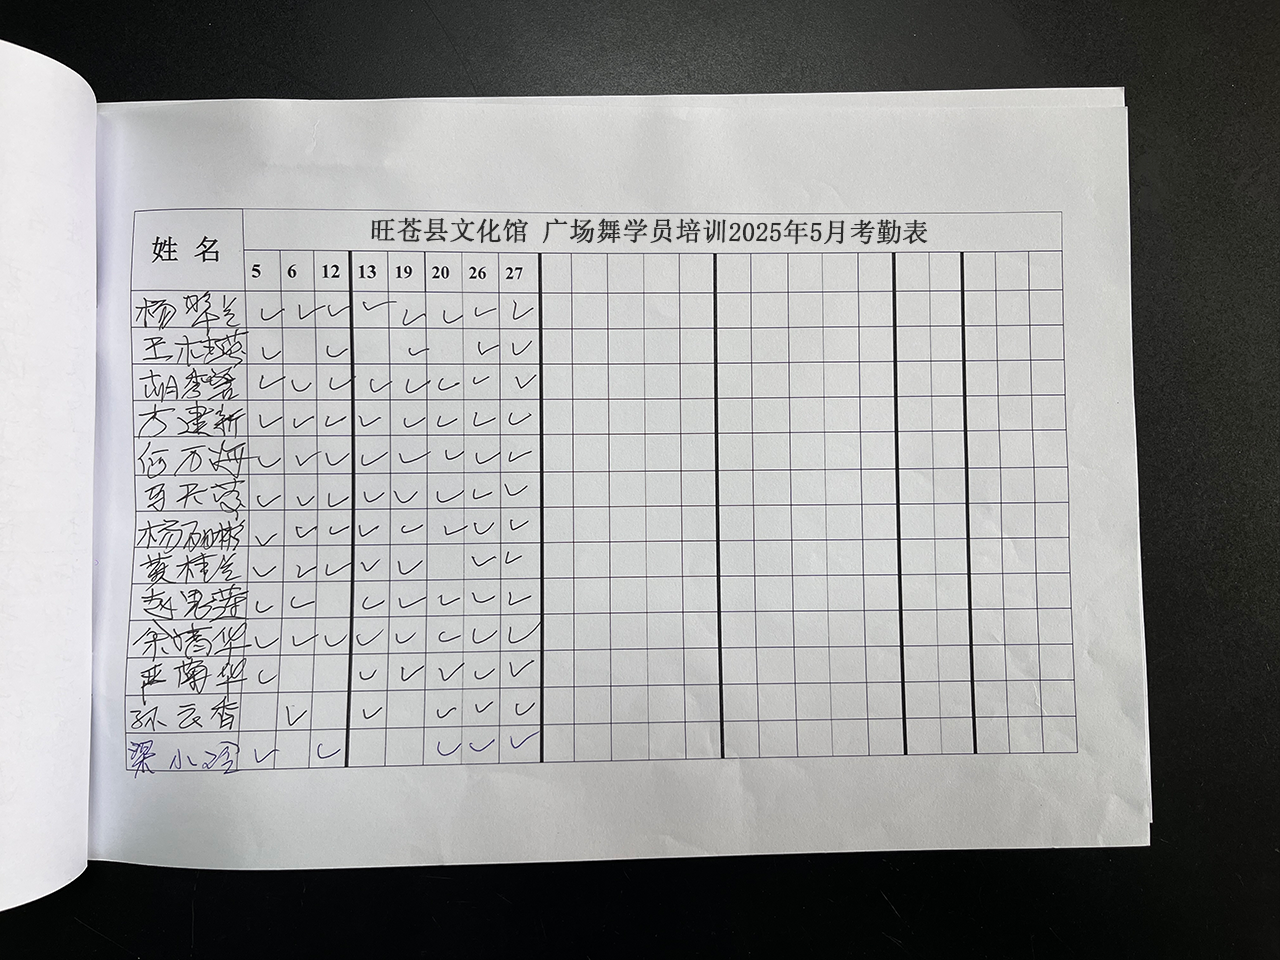 旺苍县文化馆 广场舞学员培训2025年5月考勤表
姓 名
5 6 12 13 19 20 26 27
杨翠兰 ✓ ✓ ✓ ✓ ✓ ✓ ✓ ✓
王木英 ✓ ✓ ✓ ✓ ✓
胡秀蓉 ✓ ✓ ✓ ✓ ✓ ✓ ✓ ✓
方建新 ✓ ✓ ✓ ✓ ✓ ✓ ✓ ✓
何万 ✓ ✓ ✓ ✓ ✓ ✓ ✓ ✓
马天 ✓ ✓ ✓ ✓ ✓ ✓ ✓ ✓
杨 ✓ ✓ ✓ ✓ ✓ ✓ ✓ ✓
黄桂兰 ✓ ✓ ✓ ✓ ✓ ✓ ✓
赵思莲 ✓ ✓ ✓ ✓ ✓ ✓ ✓
余清华 ✓ ✓ ✓ ✓ ✓ ✓ ✓ ✓
严菊华 ✓ ✓ ✓ ✓ ✓ ✓
孙云香 ✓ ✓ ✓ ✓ ✓
梁小 ✓ ✓ ✓ ✓ ✓